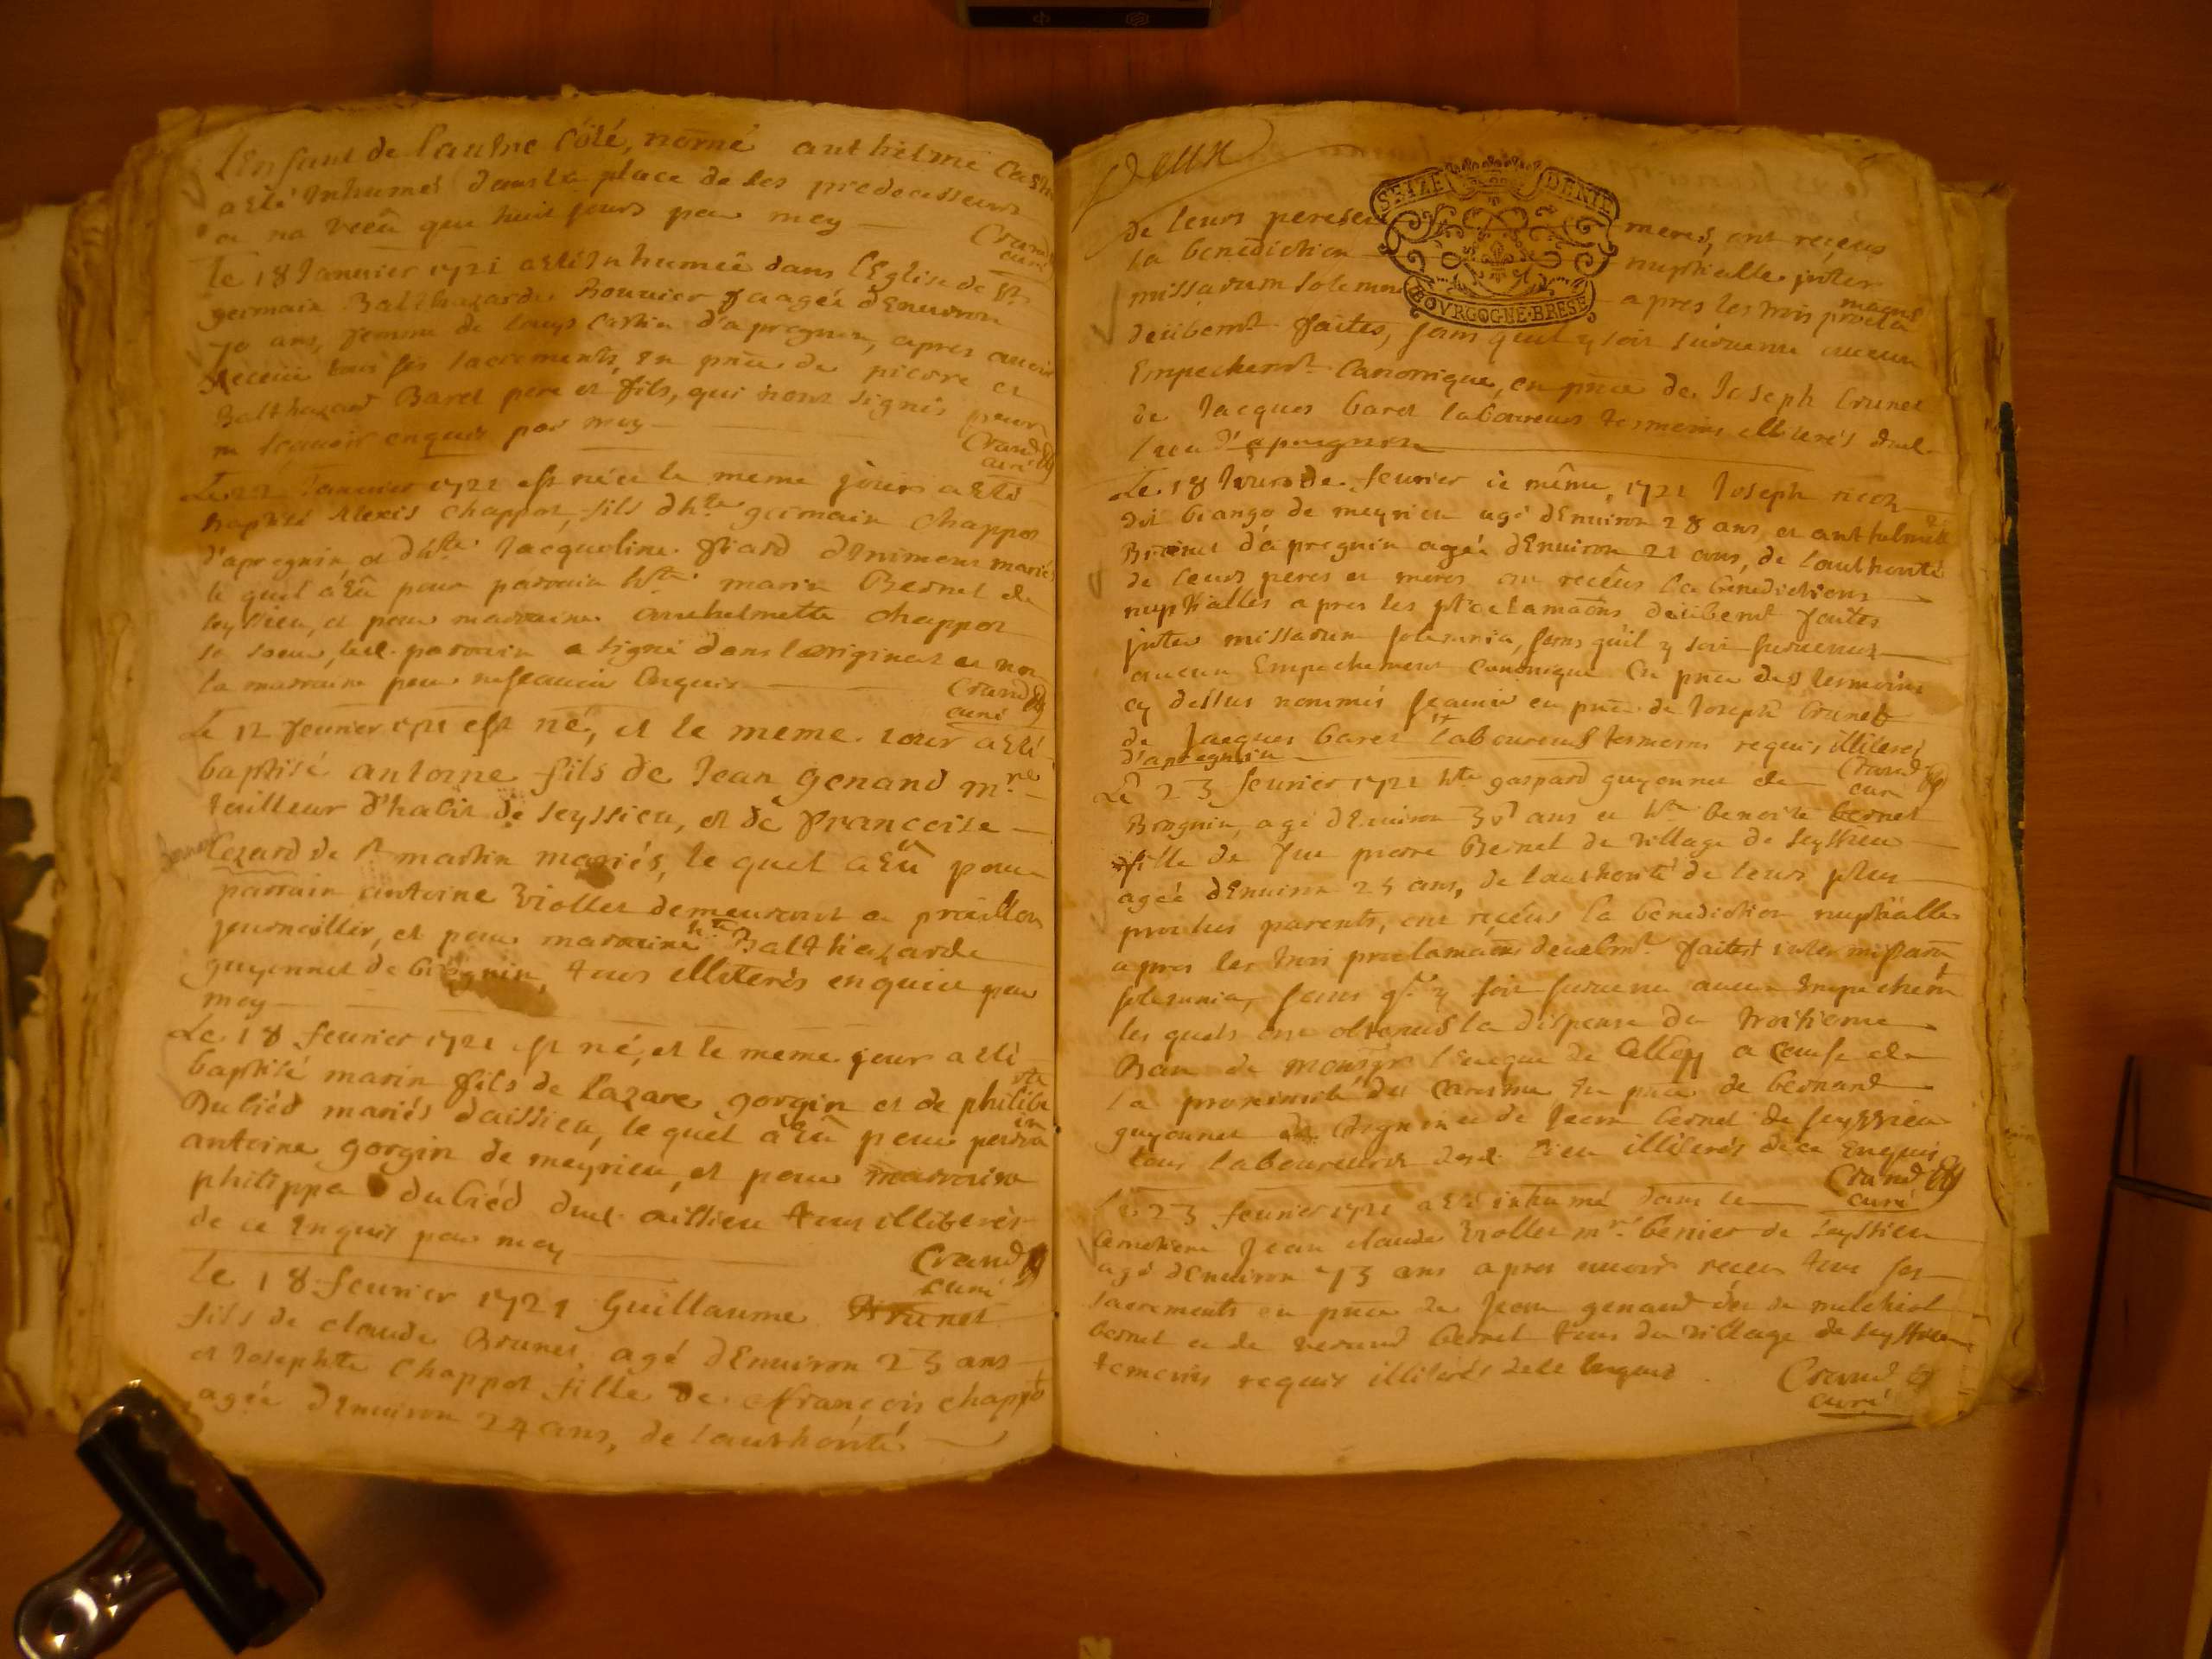 L'Enfant de l'autre Côté, nomé anthelme
a Eté Inhumés dans la place de ses predecesseurs
a na vecû que huit jours par moy
Crand
curé
Le 18 Januier 1721 a Eté Inhumeé dans l'Eglise de St
germain Balthazarde Bouuier agée d'Enuiron
70 ans, femme de Louys d'apregnin, apres auoir
receu tous ses sacrements, en pnce de pierre et
Balthazard Baret pere et fils, qui n'ont signés pour
ne scauoir enquis par moy
Crand
curé
Le 22 Januier 1721 est né et le meme jour a Eté
baptisé Alexis Chappot, fils d'hte germain Chappot
d'apregnin et d'hte Jacqueline mariés
le quel a Eû pour parrain hte marin Bernet de
seyssieu, et pour marraine anthelmette Chappot
sa soeur, led. parrain a signé dans l'original et non
la marraine pour ne scauoir Enquis
Crand
curé
Le 12 feurier 1721 est né, et le meme Jour a Eté
baptisé antoine fils de Jean genand mre
tailleur d'habit de seyssieu, et de francoise
Lezard de St martin mariés, le quel a Eû pour
parrain antoine Viollet demeurant a
journallier, et pour marraine hte Balthazarde
guyonnet de brognin, tous illiterés enquis par
moy
Le 18 feurier 1721 est né, et le meme jour a Eté
baptisé marin fils de Lazare gorgin et de philibte
Dubiéd mariés d'aissieu, le quel a Eû pour parrain
antoine gorgin de meyrieu, et pour marraine
philippa dubiéd dud. aissieu tous illiterés
de ce Enquis par moy
Crand
curé
Le 18 feurier 1721 Guillaume Brunet
fils de claude Brunet, agé d'Enuiron 25 ans
et Josephte Chappot fille de françois chappot
agée d'Enuiron 24 ans, de l'authorité
Deux
SEIZE DENIE
BOVRGOGNE·BRESE
de leurs peres et meres, ont receus
la benediction nuptialle inter
missarum solemnia apres les trois proclamaons
deüibemt faites, sans quil y soit suruenu aucun
Empechemt Canonique, en pnce de Joseph brunet
de Jacques baret laboureurs tesmoins illiterés dud.
lieu d'apregnin
Le 18 Jour de feurier ie même, 1721 Joseph
dit de meyrieu agé d'Enuiron 28 ans, et anthelmette
Brunet d'apregnin agée d'Enuiron 21 ans, de l'authorité
de leurs peres et meres ont recûs la benediction
nuptialles apres les proclamaons deüibemt faites
inter missarum solemnia, sans qu'il y soit suruenus
aucun Empechement canonique En pnce des tesmoins
cy dessus nommés scauoir en pnce de Joseph brunet
de Jacques baret laboureurs tesmoins requis illiterés
d'apregnin
Crand
curé
Le 23 feurier 1721 hte gaspard guyonnet de
Brognin, agé d'Enuiron ans et hte benoite bernet
fille de feu pierre Bernet de village de seyssieu
agée d'Enuiron 25 ans, de l'authorité de leurs plus
proches parents, ont recûs la benediction nuptialle
apres les trois proclamaons deüibmt faites inter missarum
solemnia, sans quil y soit suruenu aucun Empechemt
les quels ont obtenus la dispense du troisieme
Ban de monsgr l'Eueque de Belley a cause de
la proximité du caresme En pnce de bernard
guyonnet de brognin et de Jean bernet de seyssieu
tous laboureurs desd. lieu illiterés de ce Enquis
Crand
curé
Le 23 feurier 1721 a Eté inhumé dans le
cimetiere Jean claude Viollet mre de seyssieu
agé d'Enuiron 73 ans apres auoir receu tous ses
sacrements en pnce de Jean genand de melchiol
bernet et de bernet tous du village de seyssieu
temoins requis illiterés de ce Enquis
Crand
curé